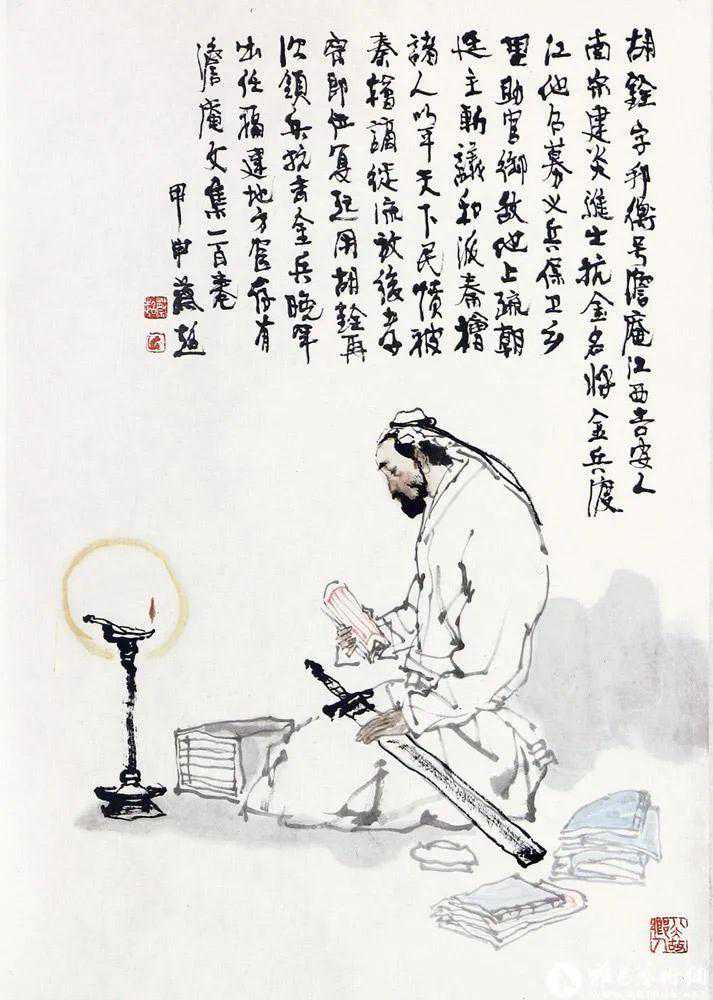 胡銓字邦衡号澹庵江西吉安人
南宋建炎進士抗金名將金兵渡
江他召募义兵保卫乡
里助官御敌他上疏朝
廷主斬議和派秦檜
諸人以平天下民憤被
秦檜謫徙流放後孝
宗即位复起用胡銓再
次領兵抗击金兵晚年
出任福建地方官存有
澹庵文集一百卷
甲申
八大故鄉人
雅昌艺术网